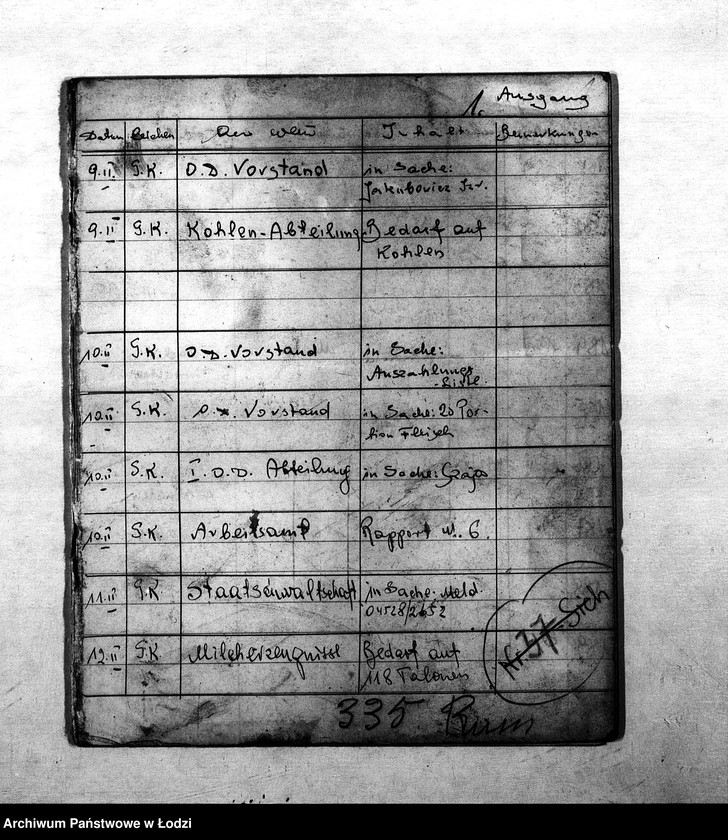 1. Ausgang
Datum Zeichen An wen Inhalt Bemerkungen
9.II. G.K. O.D. Vorstand in Sache:
Jakubowicz Szr.
9.II G.K. Kohlen-Abteilung Bedarf auf
Kohlen
10.II G.K. O.D. Vorstand in Sache:
Auszahlungs
-Liste.
10.II G.K. O.D. Vorstand in Sache: 20 Por-
tion Fleisch
10.II G.K. I. O.D. Abteilung in Sache:
10.II G.K. Arbeitsamt Rapport N. 6.
11.II G.K Staatsenwaltschaft in Sache: Meld.
04528/2652
12.II G.K. Milcherzeugnisse Bedarf auf
118 Talonen
Nr. 37
335
Archiwum Państwowe w Łodzi